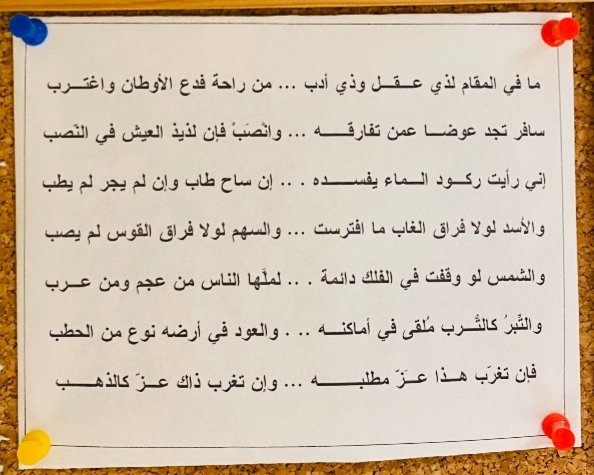 ما في المقام لذي عـــقـــل وذي أدب ... من راحة فدع الأوطان واغتـــرب
سافر تجد عوضـــا عمن تفارقـــــه ... وانْصَبْ فإن لذيذ العيش في النّصب
إني رأيت ركـــود الـــماء يفســـــده . .. إن ساح طاب وإن لم يجر لم يطب
والأسد لولا فراق الغاب ما افترست ... والسهم لولا فراق القوس لم يصب
والشمس لو وقفت في الفلك دائمة . .. لملَّها الناس من عجم ومن عـــرب
والتِّبرُ كالتُّـــرب مُلقى في أماكنـــه .. . والعود في أرضه نوع من الحطب
فإن تغرّب هـــذا عـــَزّ مطلبـــــــه ... وإن تغرب ذاك عـــزّ كالذهـــب